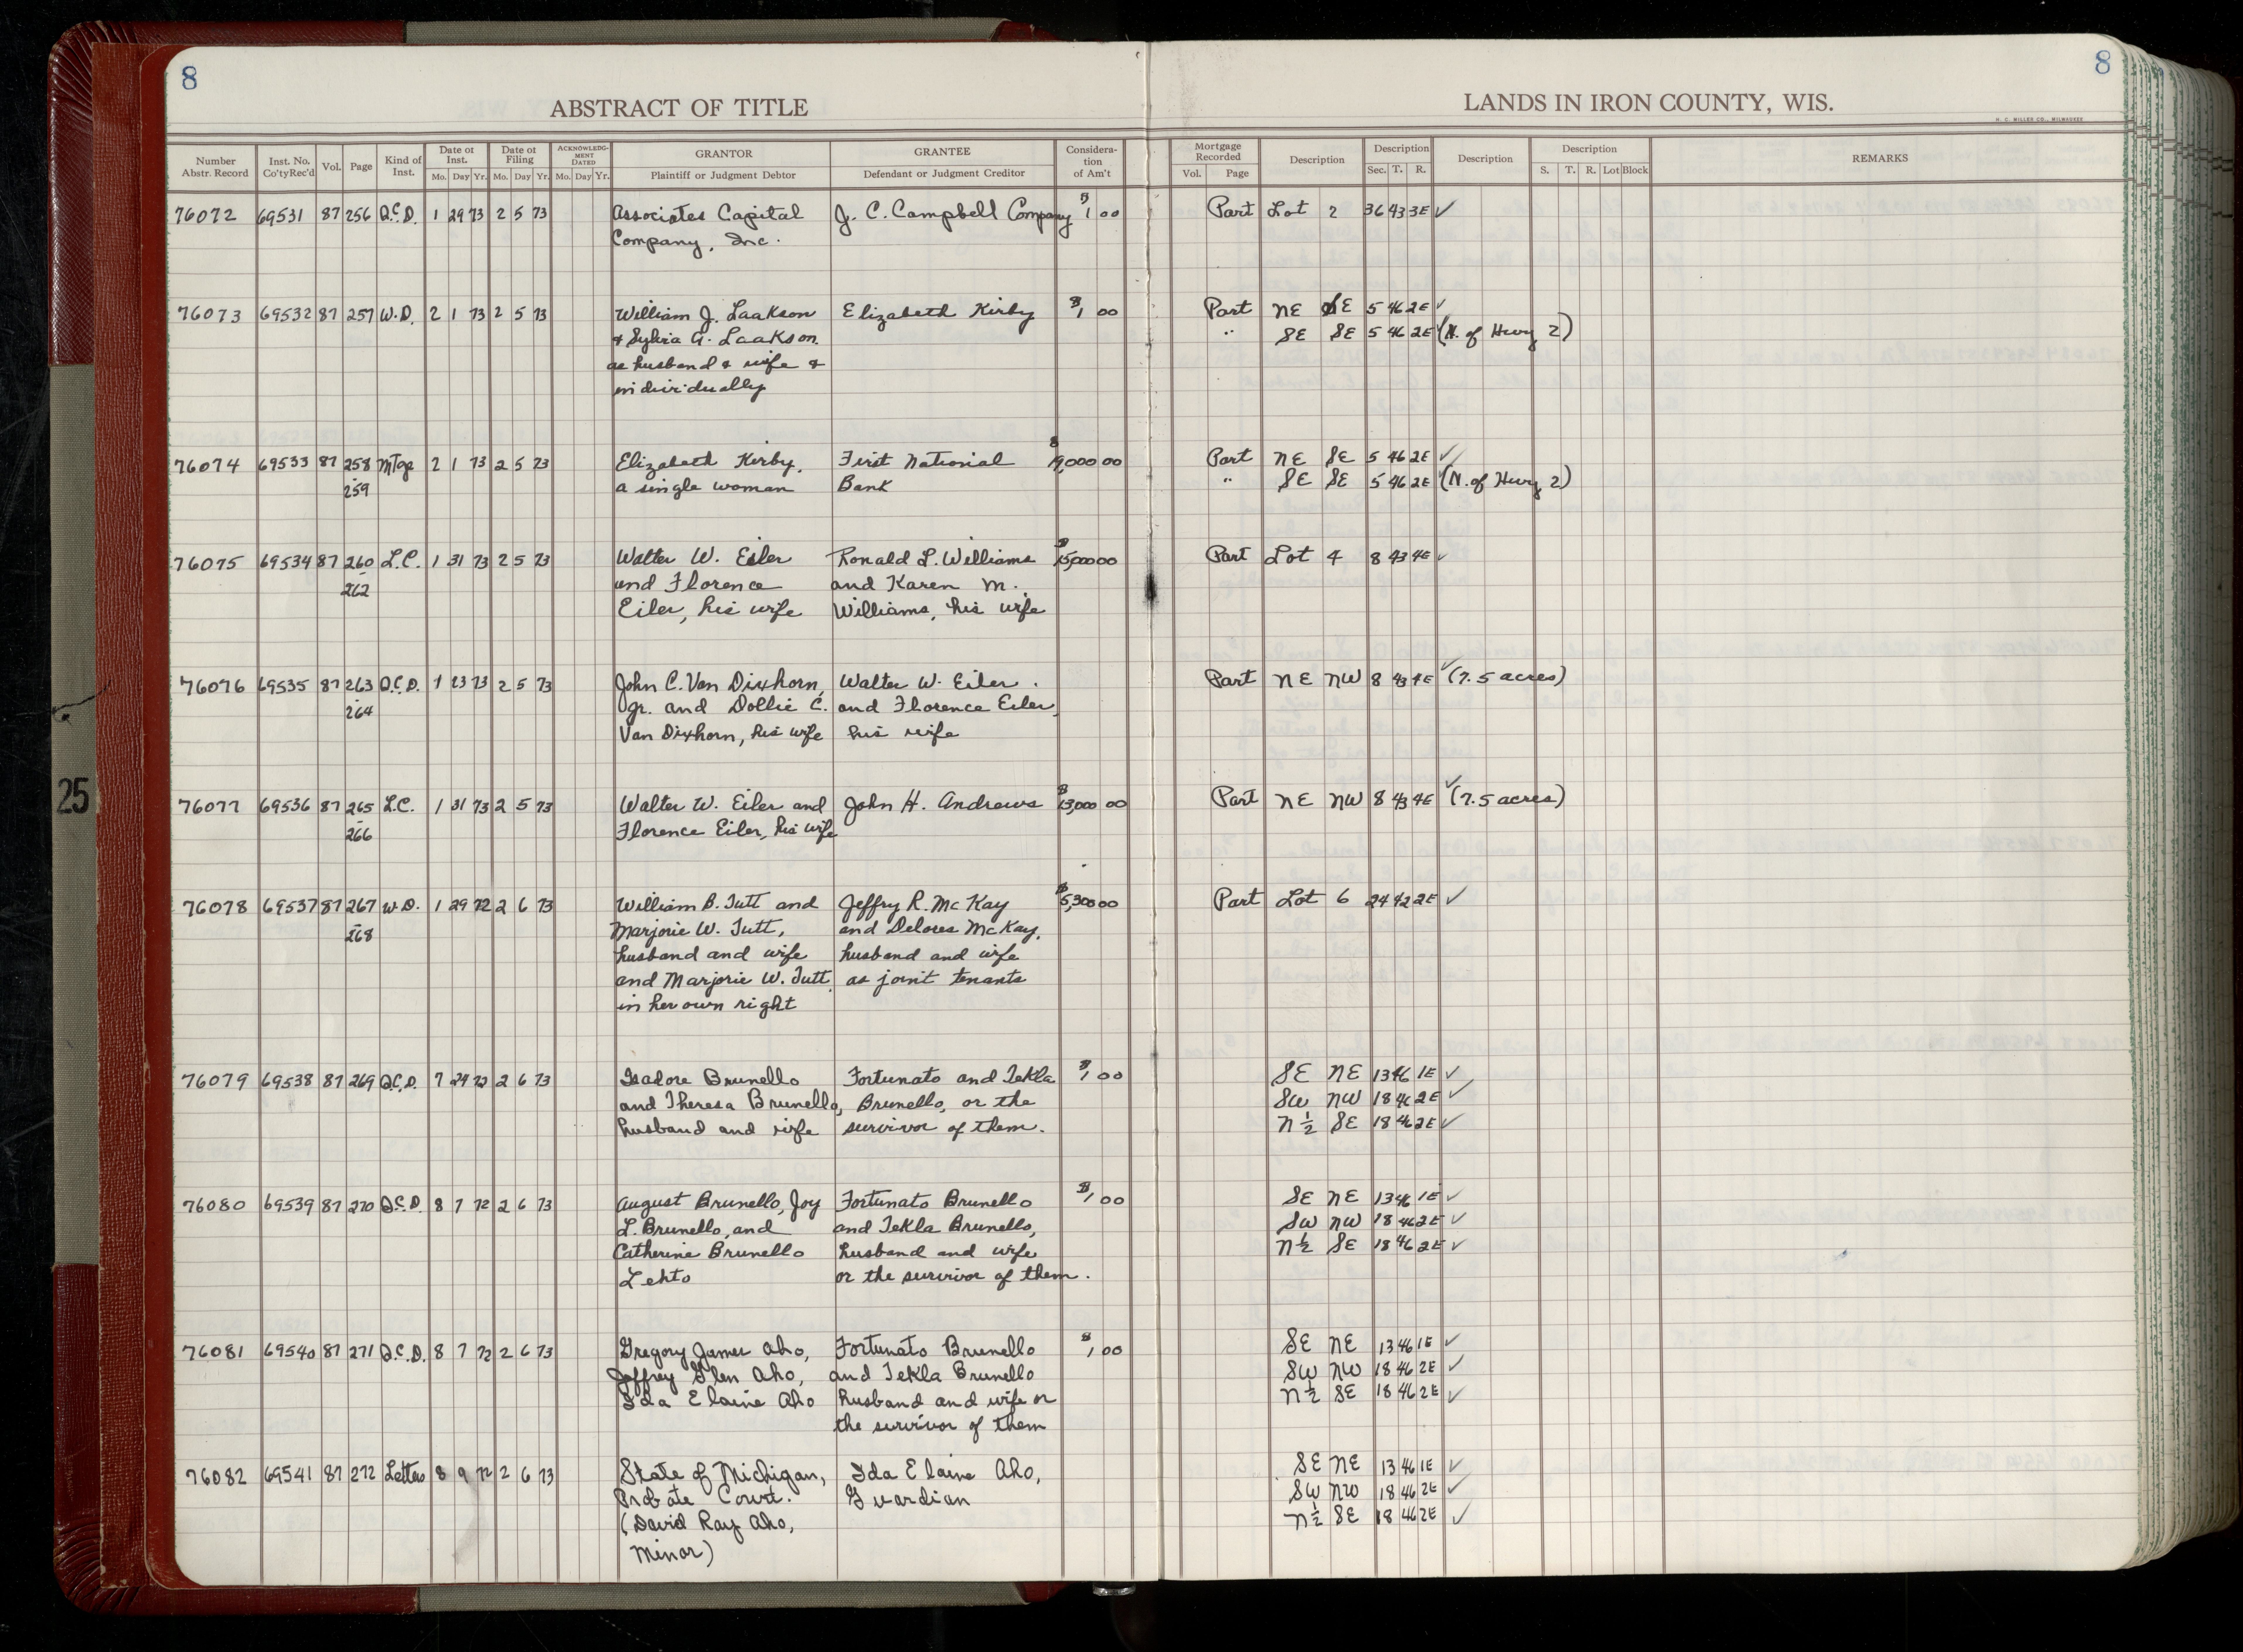 8
8
ABSTRACT OF TITLE
LANDS IN IRON COUNTY, WIS.
H. C. MILLER CO., MILWAUKEE
Number Abstr. Record | Inst. No. Co'ty Rec'd | Vol. | Page | Kind of Inst. | Date of Inst. Mo. Day Yr. | Date of Filing Mo. Day Yr. | ACKNOWLEDGMENT DATED Mo. Day Yr. | GRANTOR Plaintiff or Judgment Debtor | GRANTEE Defendant or Judgment Creditor | Consideration of Am't | Mortgage Recorded Vol. Page | Description | Description Sec. T. R. | Description | Description S. T. R. Lot Block | REMARKS
76072 69531 87 256 Q.C.D. 1 29 73 2 5 73 Associates Capital J. C. Campbell Company $1 00 Part Lot 2 36 43 3E ✓
Company, Inc.
76073 69532 87 257 W.D. 2 1 73 2 5 73 William J. Laakson Elizabeth Kirby $1 00 Part NE SE 5 46 2E ✓
& Sylvia A. Laakson " SE SE 5 46 2E (N. of Hwy 2)
as husband & wife &
individually
76074 69533 87 258 Mtge 2 1 73 2 5 73 Elizabeth Kirby, First National $19,000 00 Part NE SE 5 46 2E ✓
-259 a single woman Bank " SE SE 5 46 2E (N. of Hwy 2)
76075 69534 87 260 L.C. 1 31 73 2 5 73 Walter W. Eiler Ronald L. Williams $15,000 00 Part Lot 4 8 43 4E ✓
-262 and Florence and Karen M.
Eiler, his wife Williams, his wife
76076 69535 87 263 Q.C.D. 1 23 73 2 5 73 John C. Van Dixhorn, Walter W. Eiler Part NE NW 8 43 4E ✓ (7.5 acres)
-264 Jr. and Dollie C. and Florence Eiler,
Van Dixhorn, his wife his wife
76077 69536 87 265 L.C. 1 31 73 2 5 73 Walter W. Eiler and John H. Andrews $13,000 00 Part NE NW 8 43 4E ✓ (7.5 acres)
-266 Florence Eiler, his wife
76078 69537 87 267 W.D. 1 29 72 2 6 73 William B. Tutt and Jeffry R. McKay $5,300 00 Part Lot 6 24 42 2E ✓
-268 Marjorie W. Tutt, and Delores McKay,
husband and wife husband and wife
and Marjorie W. Tutt, as joint tenants
in her own right
76079 69538 87 269 Q.C.D. 7 24 72 2 6 73 Isadore Brunello Fortunato and Tekla $1 00 SE NE 13 46 1E ✓
and Theresa Brunello, Brunello, or the SW NW 18 46 2E ✓
husband and wife survivor of them. N½ SE 18 46 2E ✓
76080 69539 87 270 Q.C.D. 8 7 72 2 6 73 August Brunello, Joy Fortunato Brunello $1 00 SE NE 13 46 1E ✓
L. Brunello, and and Tekla Brunello, SW NW 18 46 2E ✓
Catherine Brunello husband and wife N½ SE 18 46 2E ✓
Lehto or the survivor of them.
76081 69540 87 271 Q.C.D. 8 7 72 2 6 73 Gregory James Aho, Fortunato Brunello $1 00 SE NE 13 46 1E ✓
Jeffrey Glen Aho, and Tekla Brunello SW NW 18 46 2E ✓
Ida Elaine Aho husband and wife or N½ SE 18 46 2E ✓
the survivor of them
76082 69541 87 272 Letters 8 9 72 2 6 73 State of Michigan, Ida Elaine Aho, SE NE 13 46 1E ✓
Probate Court. Guardian SW NW 18 46 2E ✓
(David Ray Aho, N½ SE 18 46 2E ✓
Minor)
25